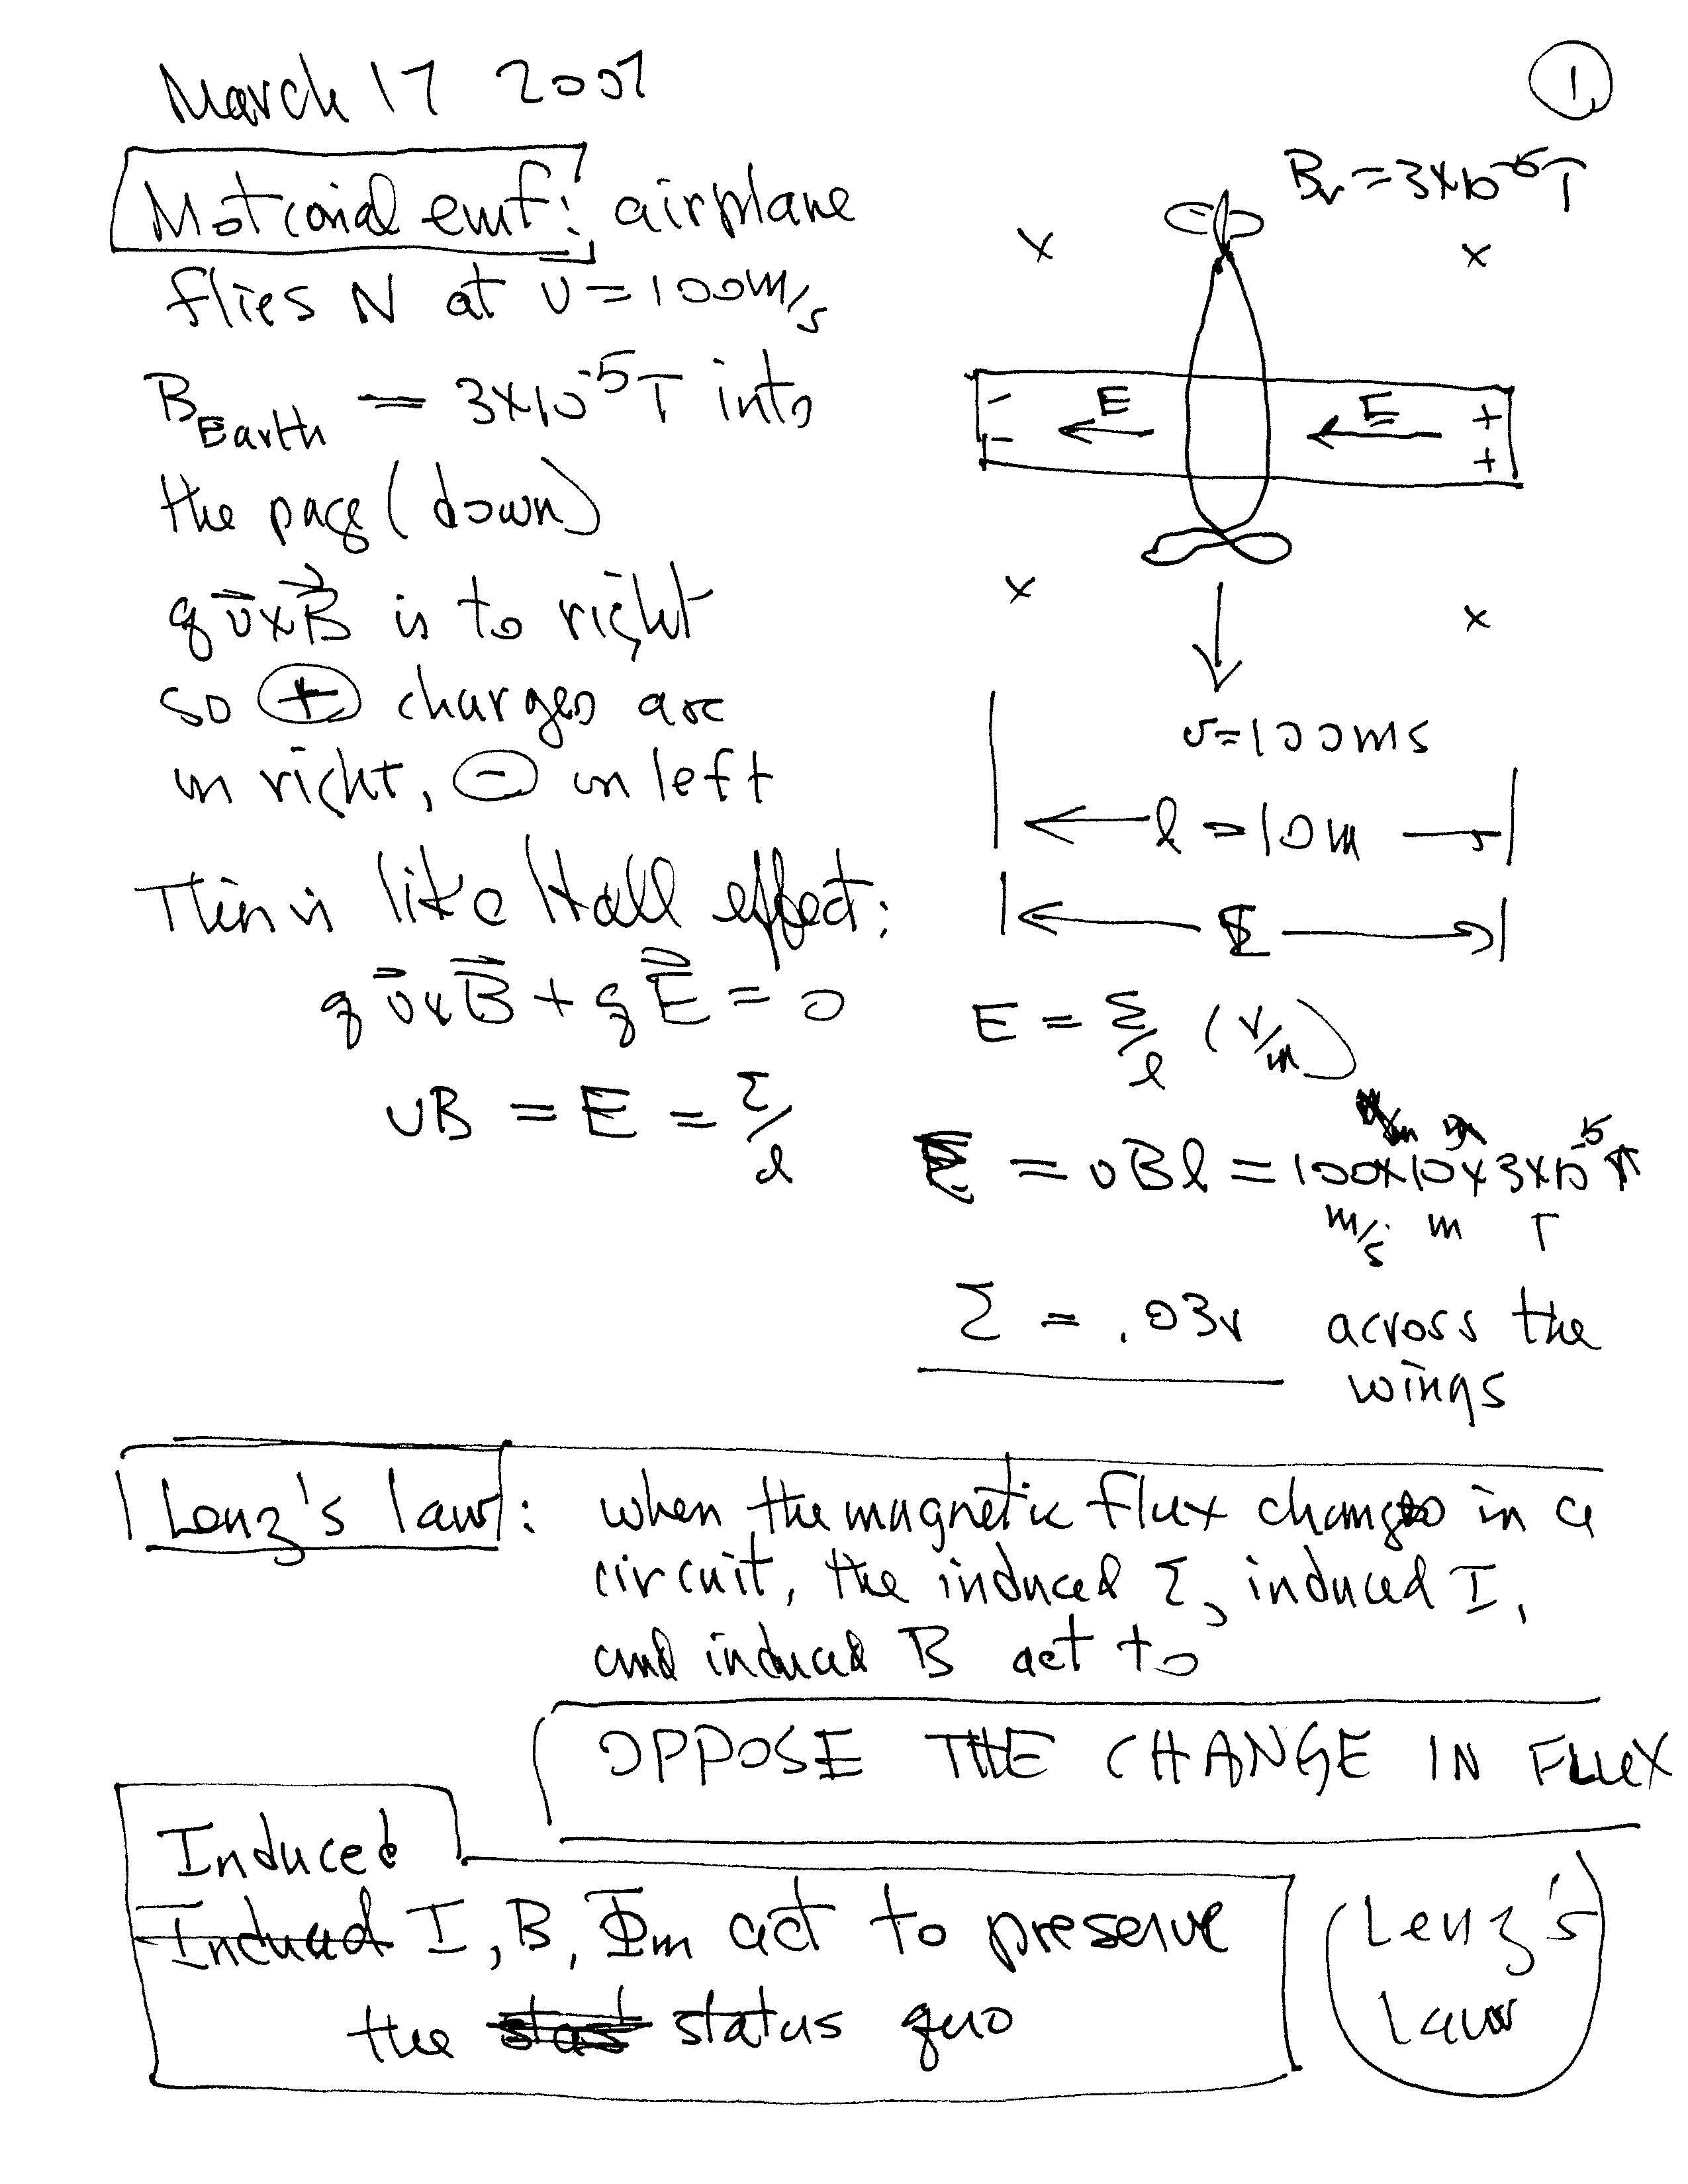 March 17 2007
①
Motional emf: airplane
flies N at v=100m/s
B_Earth = 3x10^-5 T into
the page (down)
q v⃗ x B⃗ is to right
so ⊕ charges are
on right, ⊖ on left
This is like Hall effect:
q v⃗ x B⃗ + q E⃗ = 0
vB = E = Ɛ/l
B_v = 3x10^-5 T
x x
- E E +
- +
x x
v=100ms
l = 10m
E = Ɛ/l (v/m)
Ɛ = vBl = 100x10x3x10^-5 T
m/s m T
Ɛ = .03v across the
wings
Lenz's law: when the magnetic flux changes in a
circuit, the induced Ɛ, induced I,
and induced B act to
OPPOSE THE CHANGE IN FLUX
Induced
Induced I, B, Φm act to preserve
the status quo
Lenz's
law